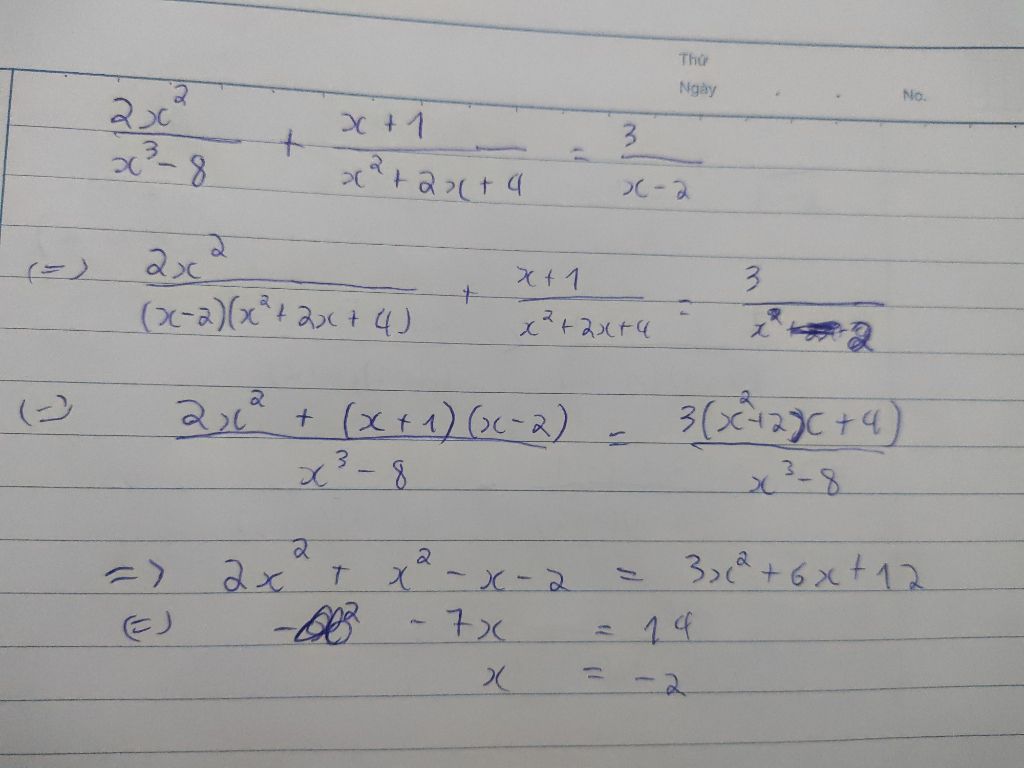 Thứ
Ngày . . No.
2x²/(x³ - 8) + (x + 1)/(x² + 2x + 4) = 3/(x - 2)
(=) 2x²/((x-2)(x² + 2x + 4)) + (x + 1)/(x² + 2x + 4) = 3/(x - 2)
(=) (2x² + (x + 1)(x - 2))/(x³ - 8) = 3(x² + 2x + 4)/(x³ - 8)
=> 2x² + x² - x - 2 = 3x² + 6x + 12
(=) - 7x = 14
x = -2